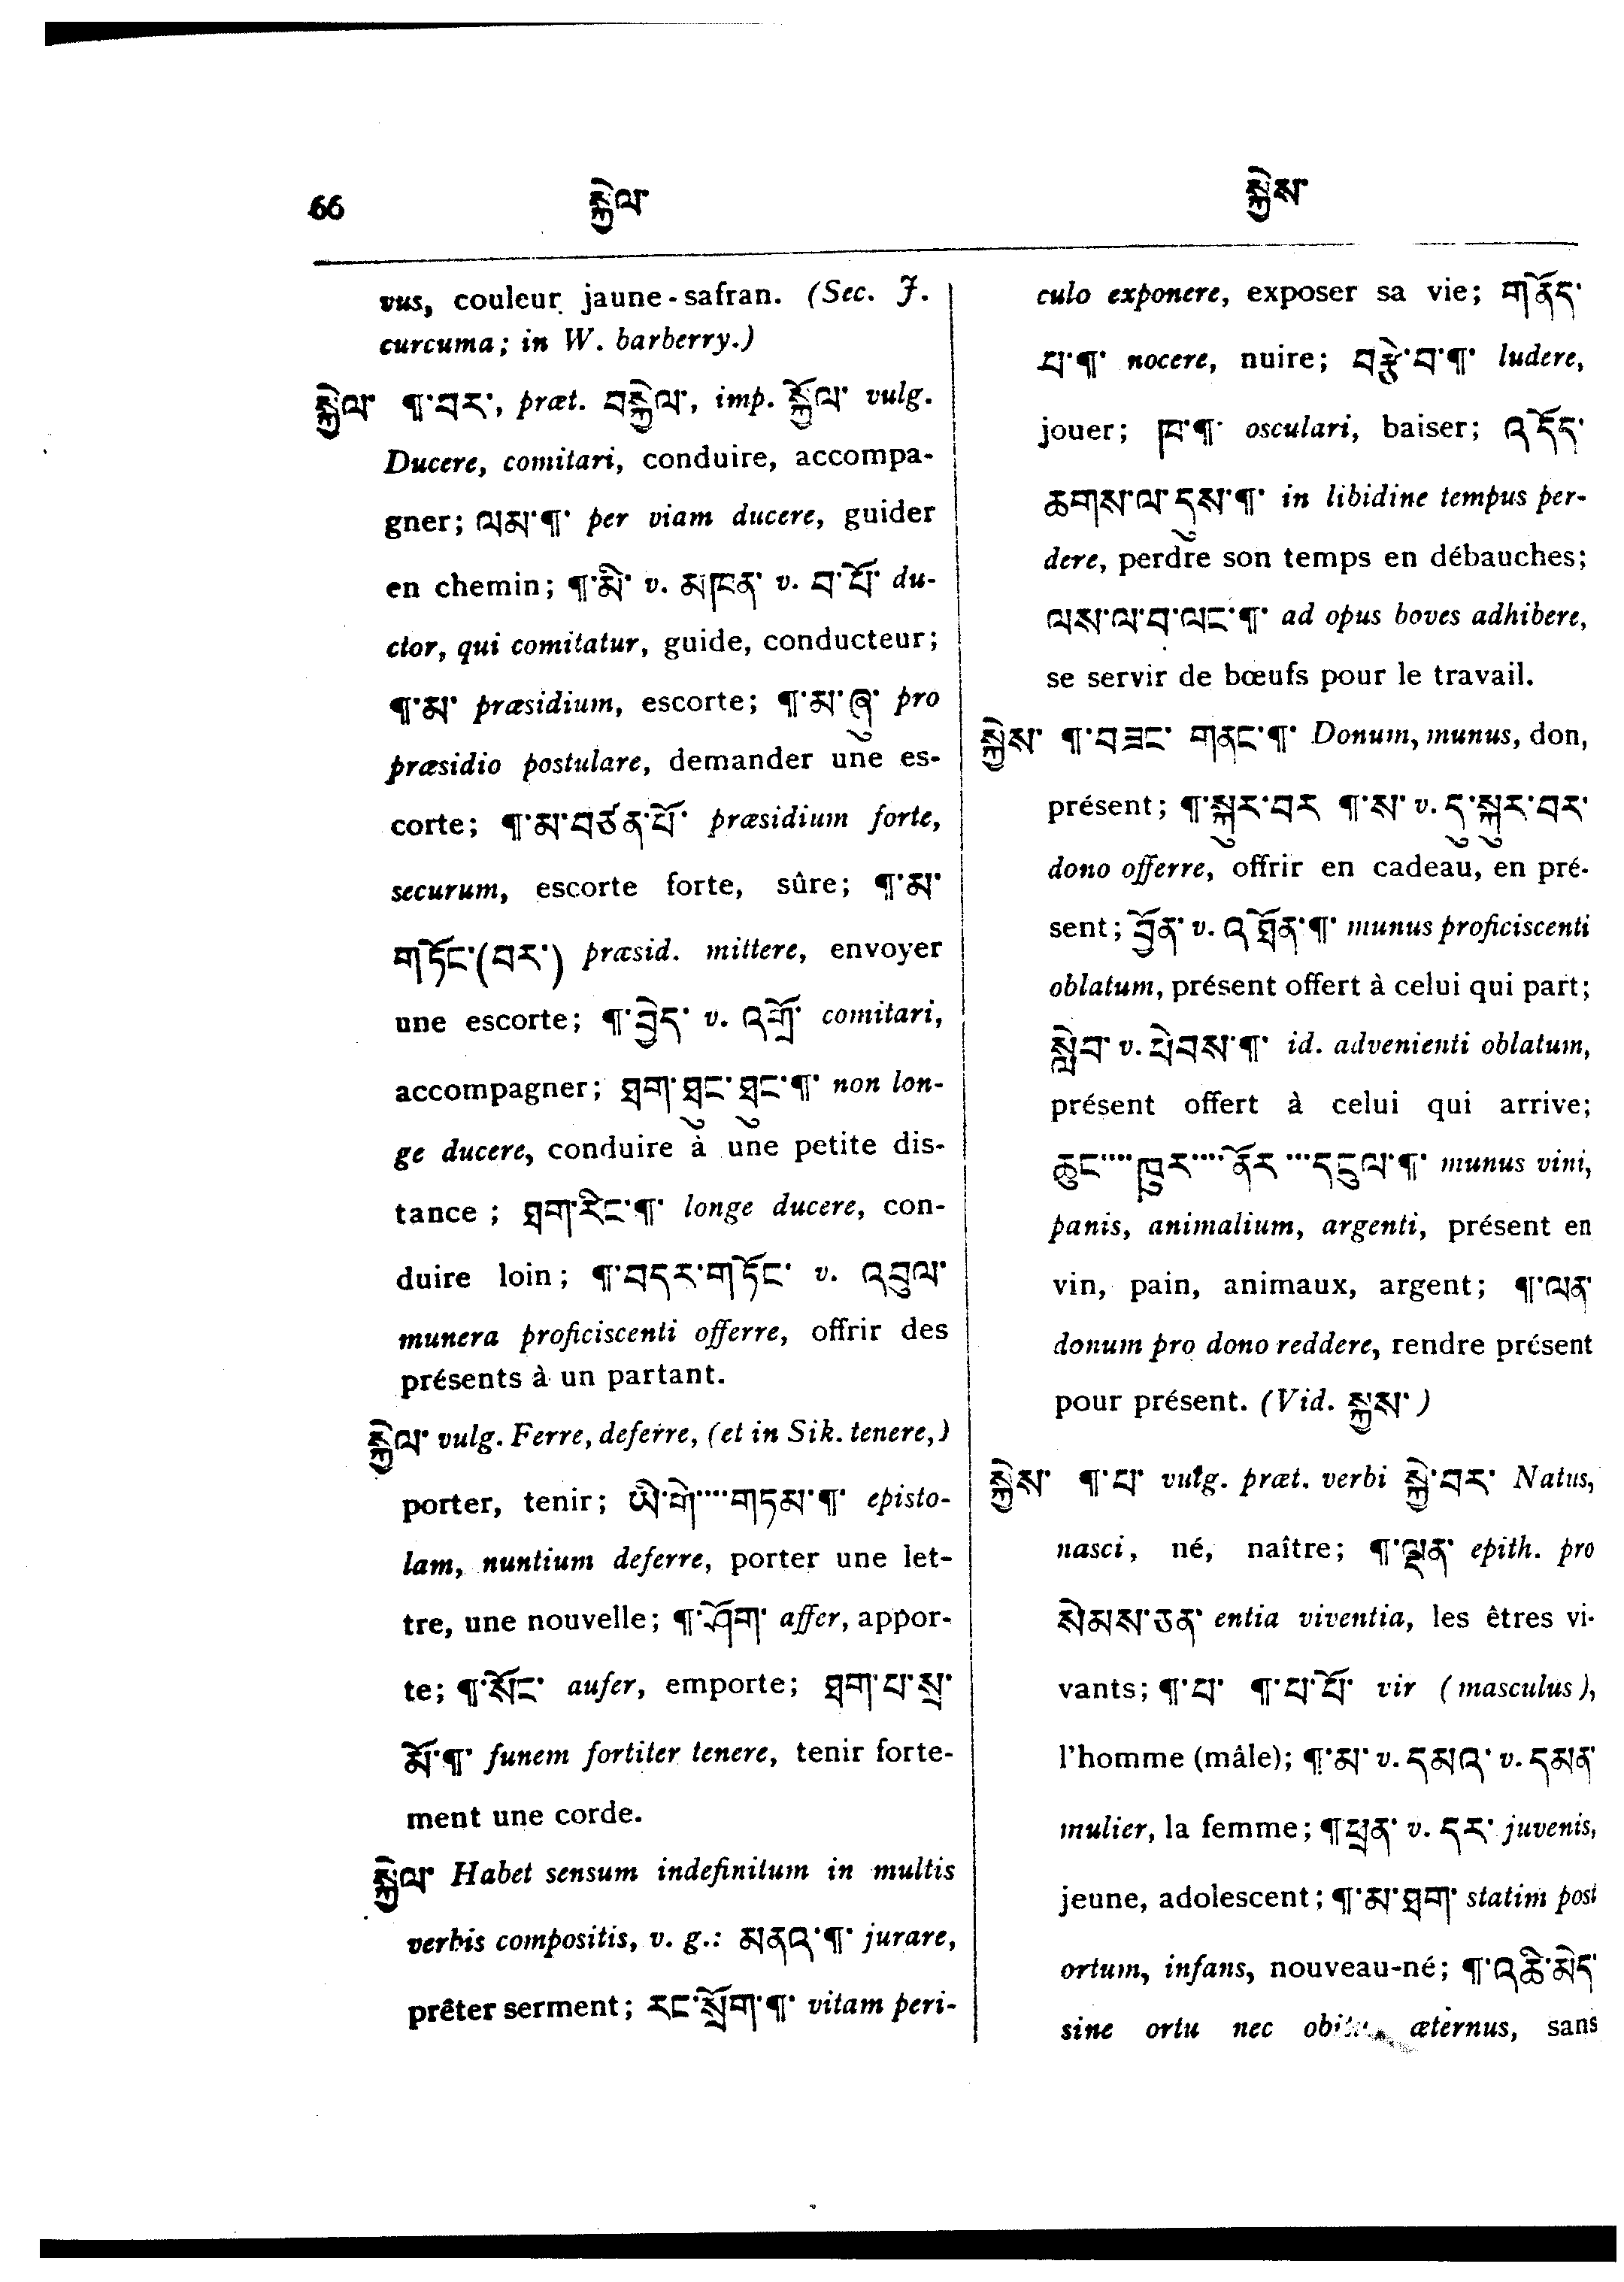 66 སྐྱེལ་ སྐྱེས་
vus, couleur jaune-safran. (Sec. J.
curcuma; in W. barberry.)
སྐྱེལ་ ¶་བར་, præt. བསྐྱེལ་, imp. སྐྱོལ་ vulg.
Ducere, comitari, conduire, accompa-
gner; ལམ་¶་ per viam ducere, guider
en chemin; ¶་མི་ v. མཁན་ v. བ་པོ་ du-
ctor, qui comitatur, guide, conducteur;
¶་མ་ præsidium, escorte; ¶་མ་ཞུ་ pro
præsidio postulare, demander une es-
corte; ¶་མ་བཙན་པོ་ præsidium forte,
securum, escorte forte, sûre; ¶་མ་
གཏོང་(བར་) præsid. mittere, envoyer
une escorte; ¶་བྱེད་ v. འགྲོ་ comitari,
accompagner; ཐག་ཐུང་ཐུང་¶་ non lon-
ge ducere, conduire à une petite dis-
tance; ཐག་རིང་¶་ longe ducere, con-
duire loin; ¶་བདར་གཏོང་ v. འབུལ་
munera proficiscenti offerre, offrir des
présents à un partant.
སྐྱེལ་ vulg. Ferre, deferre, (et in Sik. tenere,)
porter, tenir; ཡི་གེ་....གཏམ་¶་ episto-
lam, nuntium deferre, porter une let-
tre, une nouvelle; ¶་ཤོག་ affer, appor-
te; ¶་སོང་ aufer, emporte; ཐག་པ་སྲ་
མོ་¶་ funem fortiter tenere, tenir forte-
ment une corde.
སྐྱེལ་ Habet sensum indefinitum in multis
verbis compositis, v. g.: མནའ་¶་ jurare,
prêter serment; རང་སྲོག་¶་ vitam peri-
culo exponere, exposer sa vie; གནོད་
པ་¶་ nocere, nuire; བརྩེ་བ་¶་ ludere,
jouer; ཁ་¶་ osculari, baiser; འདོད་
ཆགས་ལ་དུས་¶་ in libidine tempus per-
dere, perdre son temps en débauches;
ལས་ལ་བ་ལང་¶་ ad opus boves adhibere,
se servir de bœufs pour le travail.
སྐྱེས་ ¶་བཟང་ གནང་¶་ Donum, munus, don,
présent; ¶་སྐུར་བར ¶་ས་ v. དུ་སྐུར་བར་
dono offerre, offrir en cadeau, en pré-
sent; བྱོན་ v. འཐོན་¶་ munus proficiscenti
oblatum, présent offert à celui qui part;
སླེབ་ v. ཕེབས་¶་ id. advenienti oblatum,
présent offert à celui qui arrive;
ཆུང་....ཁུར་....ནོར་...དངུལ་¶་ munus vini,
panis, animalium, argenti, présent en
vin, pain, animaux, argent; ¶་ལན་
donum pro dono reddere, rendre présent
pour présent. (Vid. སྐྱས་)
སྐྱེས་ ¶་པ་ vulg. præt. verbi སྐྱེ་བར་ Natus,
nasci, né, naître; ¶་ལྡན་ epith. pro
སེམས་ཅན་ entia viventia, les êtres vi-
vants; ¶་པ་ ¶་པ་པོ་ vir (masculus),
l'homme (mâle); ¶་མ་ v. དམའ་ v. དམན་
mulier, la femme; ¶་ཕྲན་ v. དར་ juvenis,
jeune, adolescent; ¶་མ་ཐག་ statim post
ortum, infans, nouveau-né; ¶་འཆི་མེད་
sine ortu nec æternus, sans